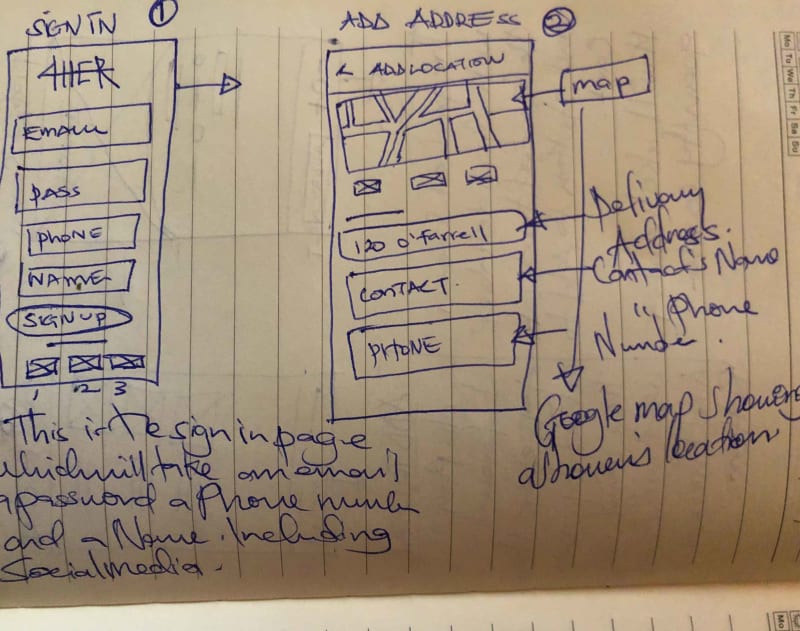 SIGN IN ①
4HER
EMAIL
PASS
PHONE
NAME
SIGN UP
1 2 3
This is the sign in page,
which will take an email
a password a Phone number
and a Name. Including
Social media.
ADD ADDRESS ②
< ADD LOCATION
map
120 O'farrell
CONTACT.
PHONE
Delivery
Address.
Contact's Name
" Phone
Number.
Google map showing
location
Mo
Tu
We
Th
Fr
Sa
Su
Mo